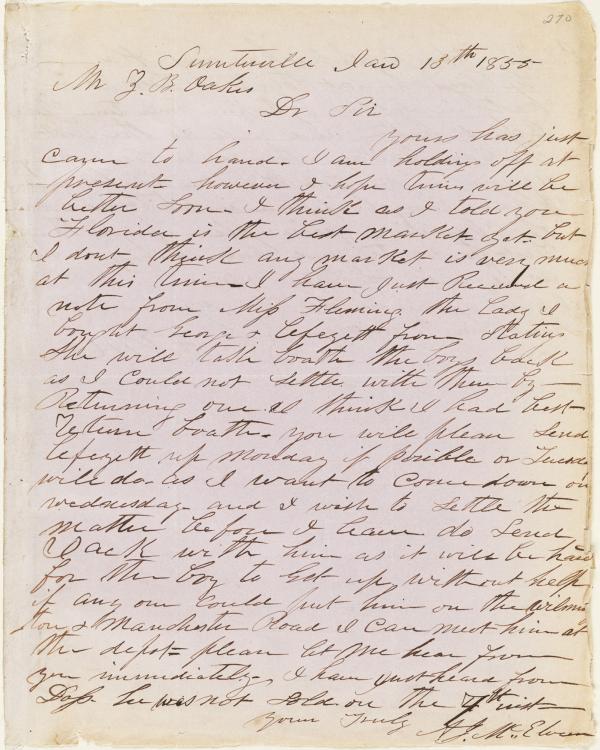 270
Sumterville Jan 13th 1855
Mr Z. B. Oakes
Dr Sir
yours has just
came to hand. I am holding off at
present however I hope times will be
better soon. I think as I told you
Florida is the best market yet. but
I dont think any market is very much
at this time. I have just Received a
note from Miss Fleming the Lady I
bought George & Lefegett from stating
She will take boath the boys back
as I could not settle with them by
Returning one. I think I had best
Return boath. you will please send
Lefegett up monday if posible or Tuesday
will do. as I want to come down on
wednesday. and I wish to settle the
matter before I leave do send
Jack with him as it will be hard
for the boy to get up without help
if any one could put him on the Wilming
ton & Manchester Road I can meet him at
the depot. please let me hear from
you immediately. I have just heard from
he was not sold on the inst
yours Truly A. J. McElveen